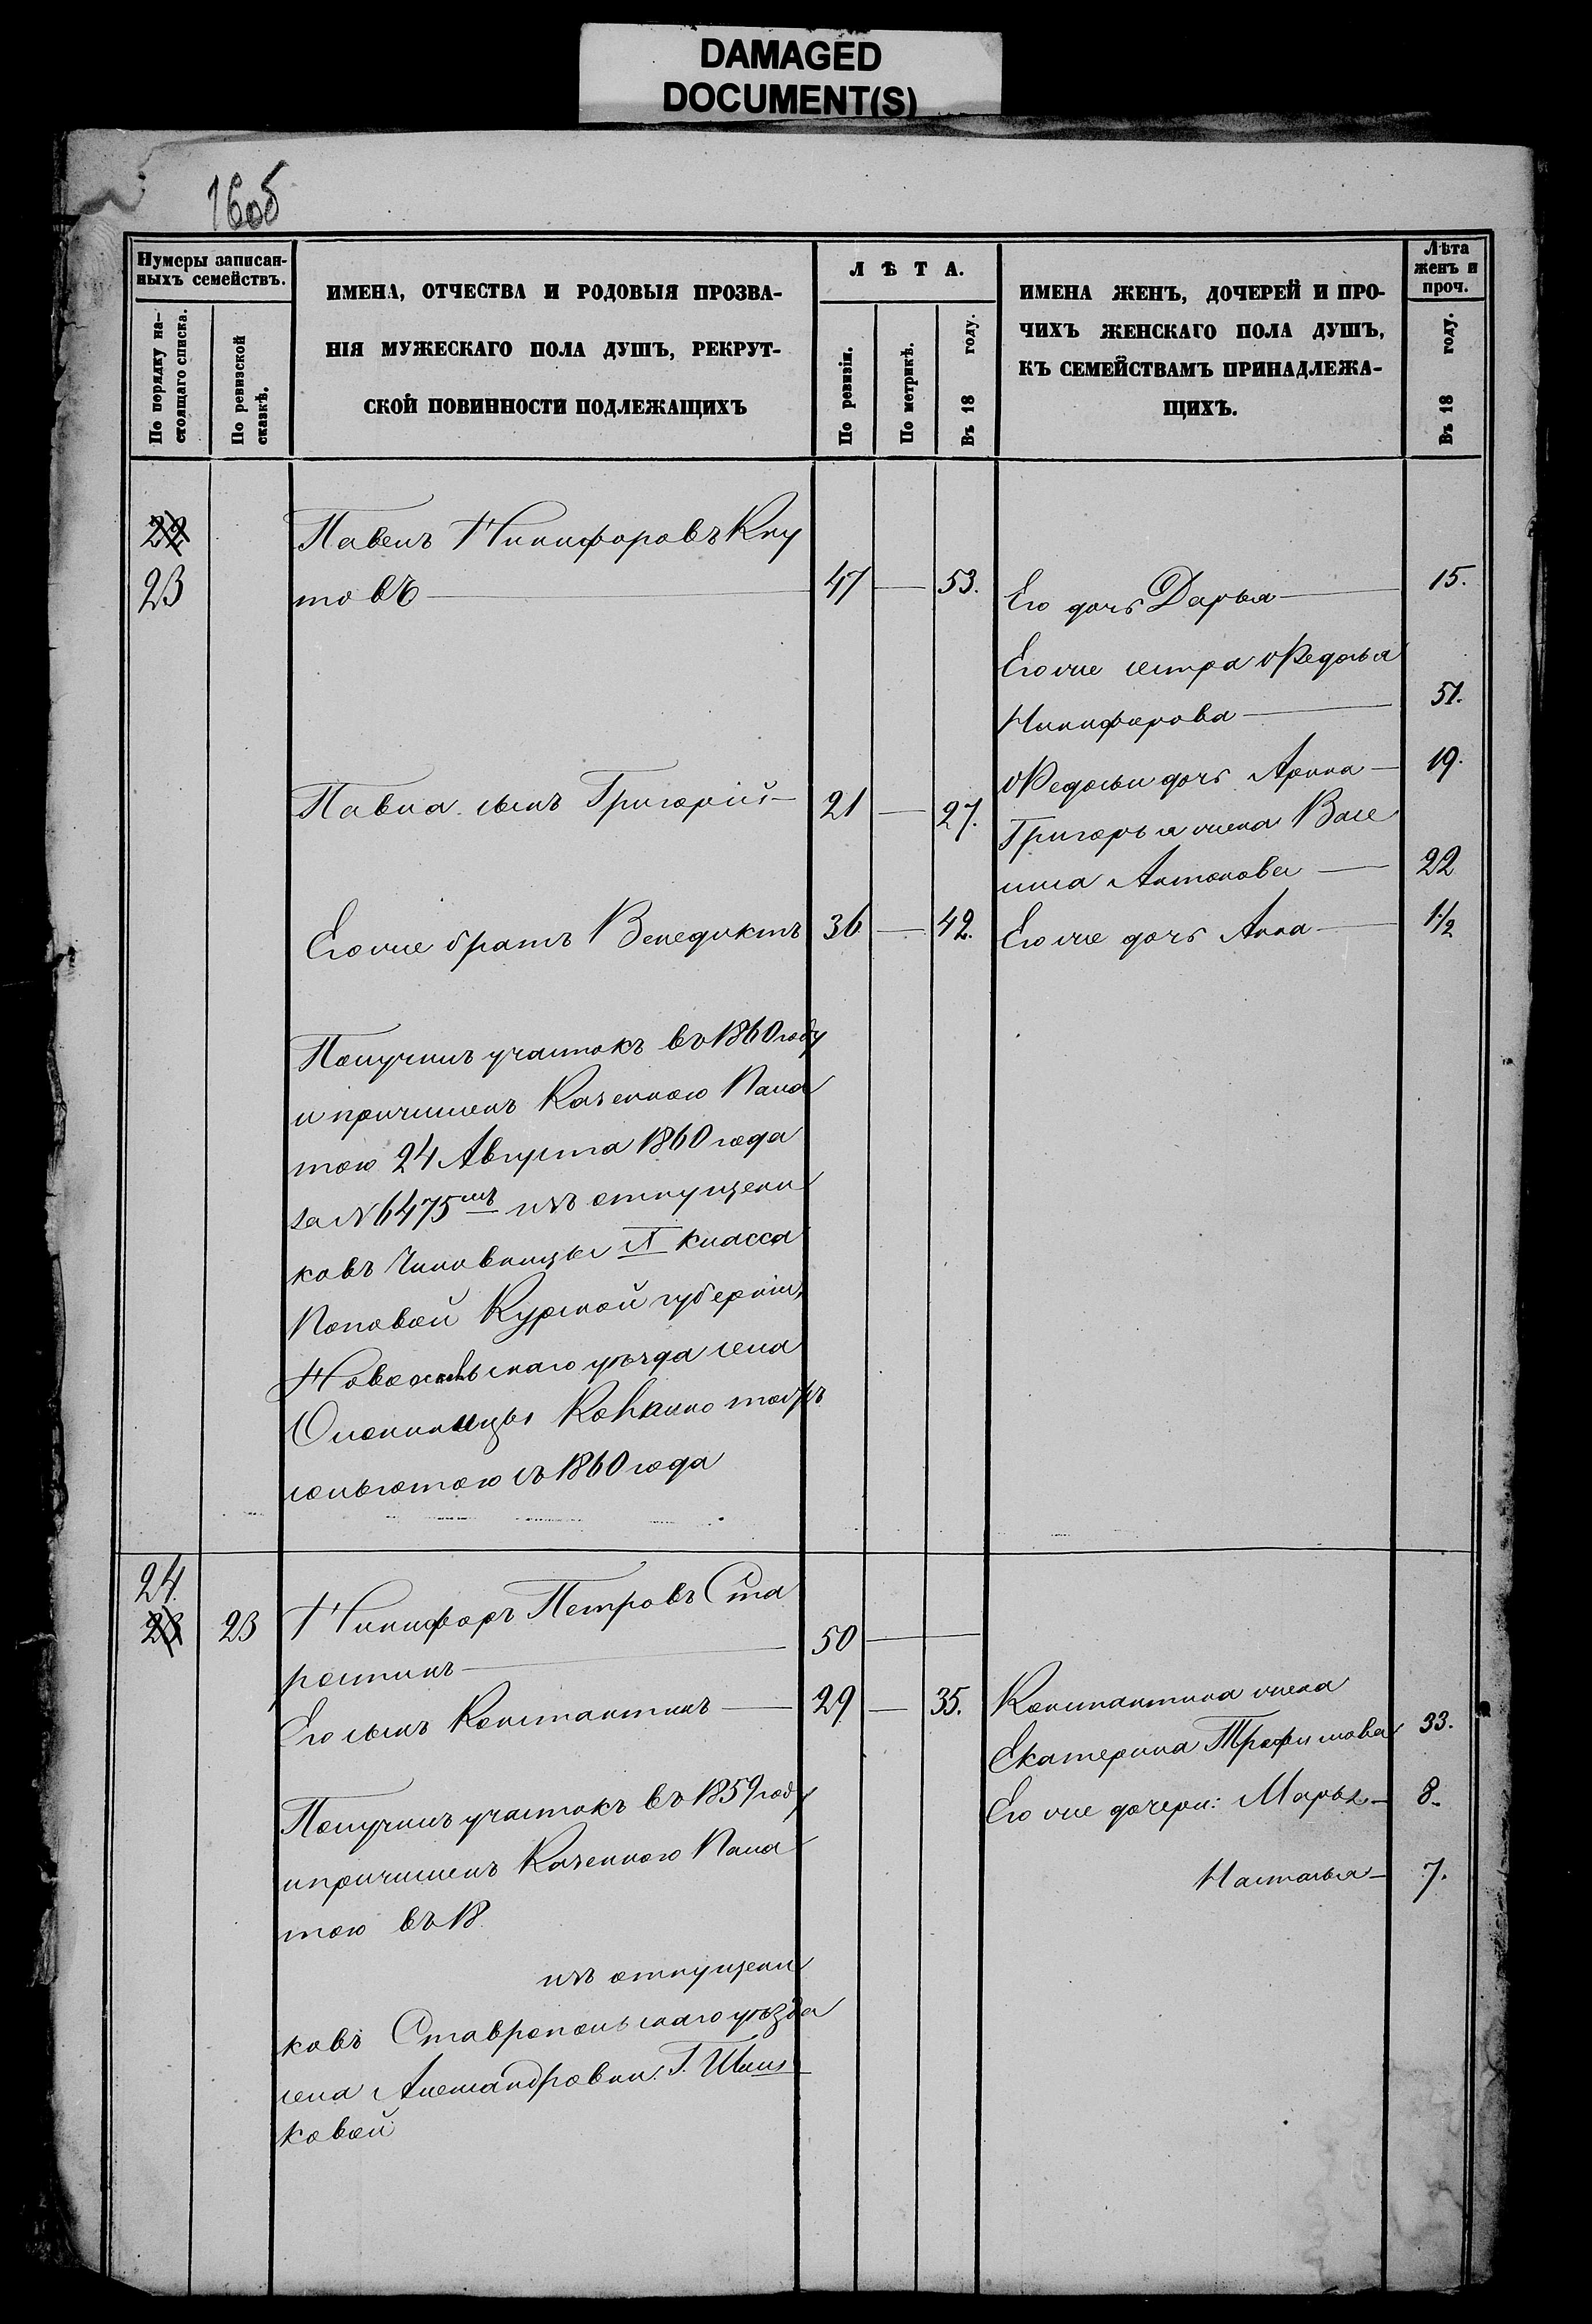 DAMAGED
DOCUMENT(S)
16об
Нумеры записан-
ныхъ семействъ.
По порядку на-
стоящаго списка.
По ревизской
сказкѣ.
ИМЕНА, ОТЧЕСТВА И РОДОВЫЯ ПРОЗВА-
НІЯ МУЖЕСКАГО ПОЛА ДУШЪ, РЕКРУТ-
СКОЙ ПОВИННОСТИ ПОДЛЕЖАЩИХЪ
ЛѢТА.
По ревизіи.
По метрикѣ.
Въ 18 году.
ИМЕНА ЖЕНЪ, ДОЧЕРЕЙ И ПРО-
ЧИХЪ ЖЕНСКАГО ПОЛА ДУШЪ,
КЪ СЕМЕЙСТВАМЪ ПРИНАДЛЕЖА-
ЩИХЪ.
Лѣта
женъ и
проч.
Въ 18 году.
22 Павелъ Никифоровъ Кну
23 товъ — 47 — 53. Его дочь Дарья — 15.
Его же сестра Ѳедосья
Никифорова — 51.
Ѳедосьи дочь Арина — 19.
Павла сынъ Григорій — 21 — 27.
Григорья жена Васе
лиса Антонова — 22
Его же братъ Венедиктъ 36 — 42. Его же дочь Анна — 1½
Получилъ участокъ въ 1860 году
и причисленъ Казенною Пала
тою 24 Августа 1860 года
за № 6475мъ изъ отпущени
ковъ Чиновницы класса
Поповой Курской губерніи,
Новооскольскаго уѣзда села
съ 1860 года
24.
23 23 Никифоръ Петровъ Ста
ростинъ — 50 —
Его сынъ Константинъ — 29 — 35. Константина жена
Екатерина Трофимова 33.
Его же дочери: Марья — 8.
Настасья — 7.
Получилъ участокъ въ 1859 году
и причисленъ Казенною Пала
тою въ 18
изъ отпущени
ковъ Ставропольскаго уѣзда
села Александровки Г. Шиш
ковой